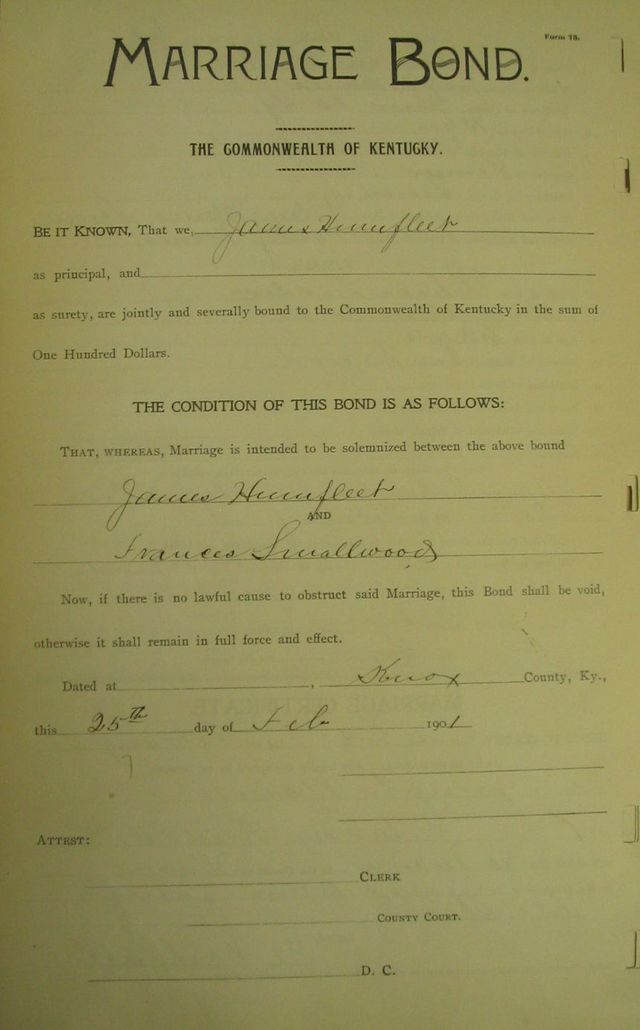 Form 78.
MARRIAGE BOND.
THE COMMONWEALTH OF KENTUCKY.
BE IT KNOWN, That we, James Humfleet
as principal, and
as surety, are jointly and severally bound to the Commonwealth of Kentucky in the sum of
One Hundred Dollars.
THE CONDITION OF THIS BOND IS AS FOLLOWS:
THAT, WHEREAS, Marriage is intended to be solemnized between the above bound
James Humfleet
AND
Frances Smallwood
Now, if there is no lawful cause to obstruct said Marriage, this Bond shall be void,
otherwise it shall remain in full force and effect.
Dated at , Knox County, Ky.,
this 25th day of Feb 1901
ATTEST:
CLERK
COUNTY COURT.
D. C.